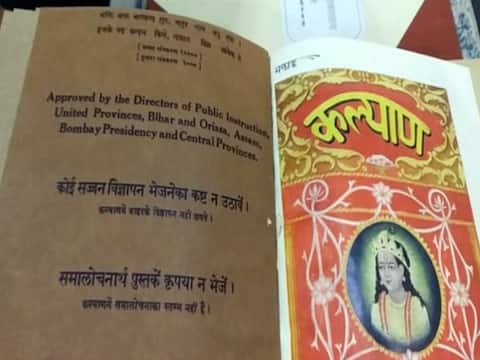 [प्रथम संस्करण
Approved by the Directors of Public Instructions,
United Provinces, Bihar and Orissa, Assam,
Bombay Presidency and Central Provinces.
कोई सज्जन विज्ञापन भेजनेका कष्ट न उठावें।
कल्याणमें बाहरके विज्ञापन नहीं छपते।
समालोचनार्थ पुस्तकें कृपया न भेजें।
कल्याणमें समालोचनाका स्तम्भ नहीं है।
कल्याण